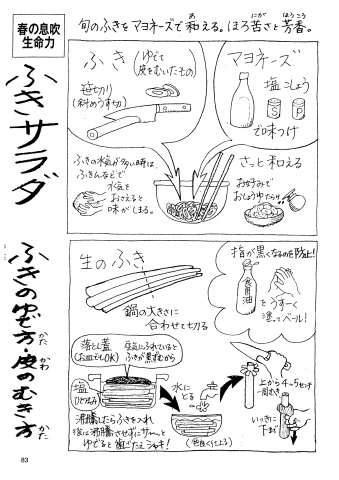 春の息吹
生命力
ふきサラダ
旬のふきをマヨネーズで和える。ほろ苦さと芳香。
あ
にが
ほうこう
ふき
(ゆでて
皮をむいたもの)
笹切り
(斜めうす切)
マヨネーズ
塩こしょう
S
P
で味つけ
ふきの水気が多い時は、
ふきんなどで
水気を
おさえると
味がしまる。
さっと和える
お好みで
おしょうゆたらり
ふきのゆで方・皮のむき方
かた
かわ
かた
生のふき
鍋の大きさに
合わせて切る
指が黒くなるのを防止!
食用油
をうすーく
塗ってベール!
落とし蓋
(お皿でもOK)
空気にふれていると
ふきが黒ずむから
塩
ひとつまみ
水に
とる
沸騰したらふきを入れ
後は沸騰させずにサーッと
ゆでると歯ごたえシャキ!
(色良く仕上る)
上から4〜5センチ
一周むき
いっきに
下まで
83